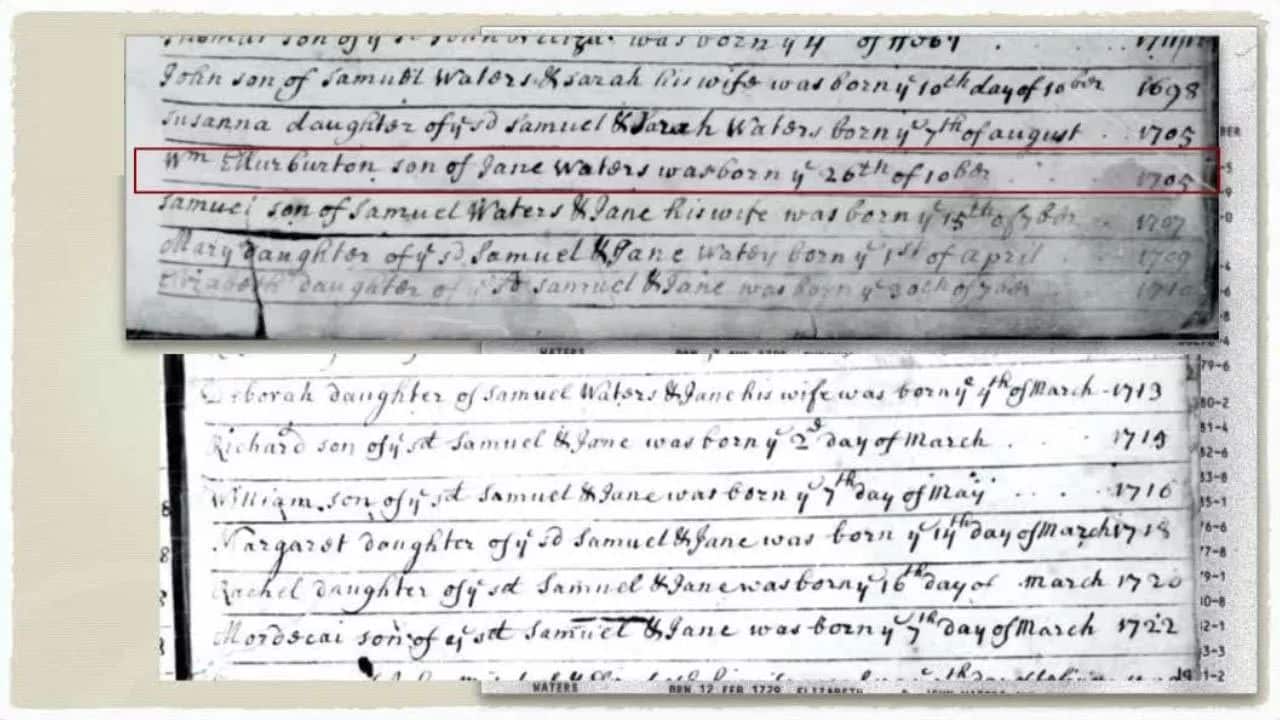 son of yᵉ sd John & Eliza: was born yᵉ 4
John son of Samuel Waters & Sarah his wife was born yᵉ 10th day of 10ber 1698
Susanna daughter of yᵉ sd Samuel & Sarah Waters born yᵉ 7th of august . . 1705
Wm Ellurburton son of Jane Waters was born yᵉ 26th of 10ber . . 1705
Samuel son of Samuel Waters & Jane his wife was born yᵉ 15th of 7ber . . 1707
Mary daughter of yᵉ sd Samuel & Jane Waters born yᵉ 1st of april 1709
Elizabeth daughter of yᵉ sd Samuel & Jane was born yᵉ 30th of 7ber
WATERS
Deborah daughter of Samuel Waters & Jane his wife was born yᵉ 4th of March - 1713
Richard son of yᵉ sd Samuel & Jane was born yᵉ 2d day of March . . . 1715
William son of yᵉ sd Samuel & Jane was born yᵉ 7th day of May . . . 1716
Margaret daughter of yᵉ sd Samuel & Jane was born yᵉ 14th day of March 1718
Rachel daughter of yᵉ sd Samuel & Jane was born yᵉ 16th day of March 1720
Mordecai son of yᵉ sd Samuel & Jane was born yᵉ 7th day of March 1722
WATERS BRN 12 FEB 1729 ELIZABETH